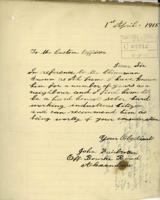 1st April 1915
To the Custom Officer
Dear Sir
In reference to the Chinaman
known as Ah I have known
him for a number of years as a
neighbour and I find him to
be a hard honest sober hard
working industrious Citizen
and can recommend him to
being worthy of your consideration
Your Obedient
John
Off Bourke Road